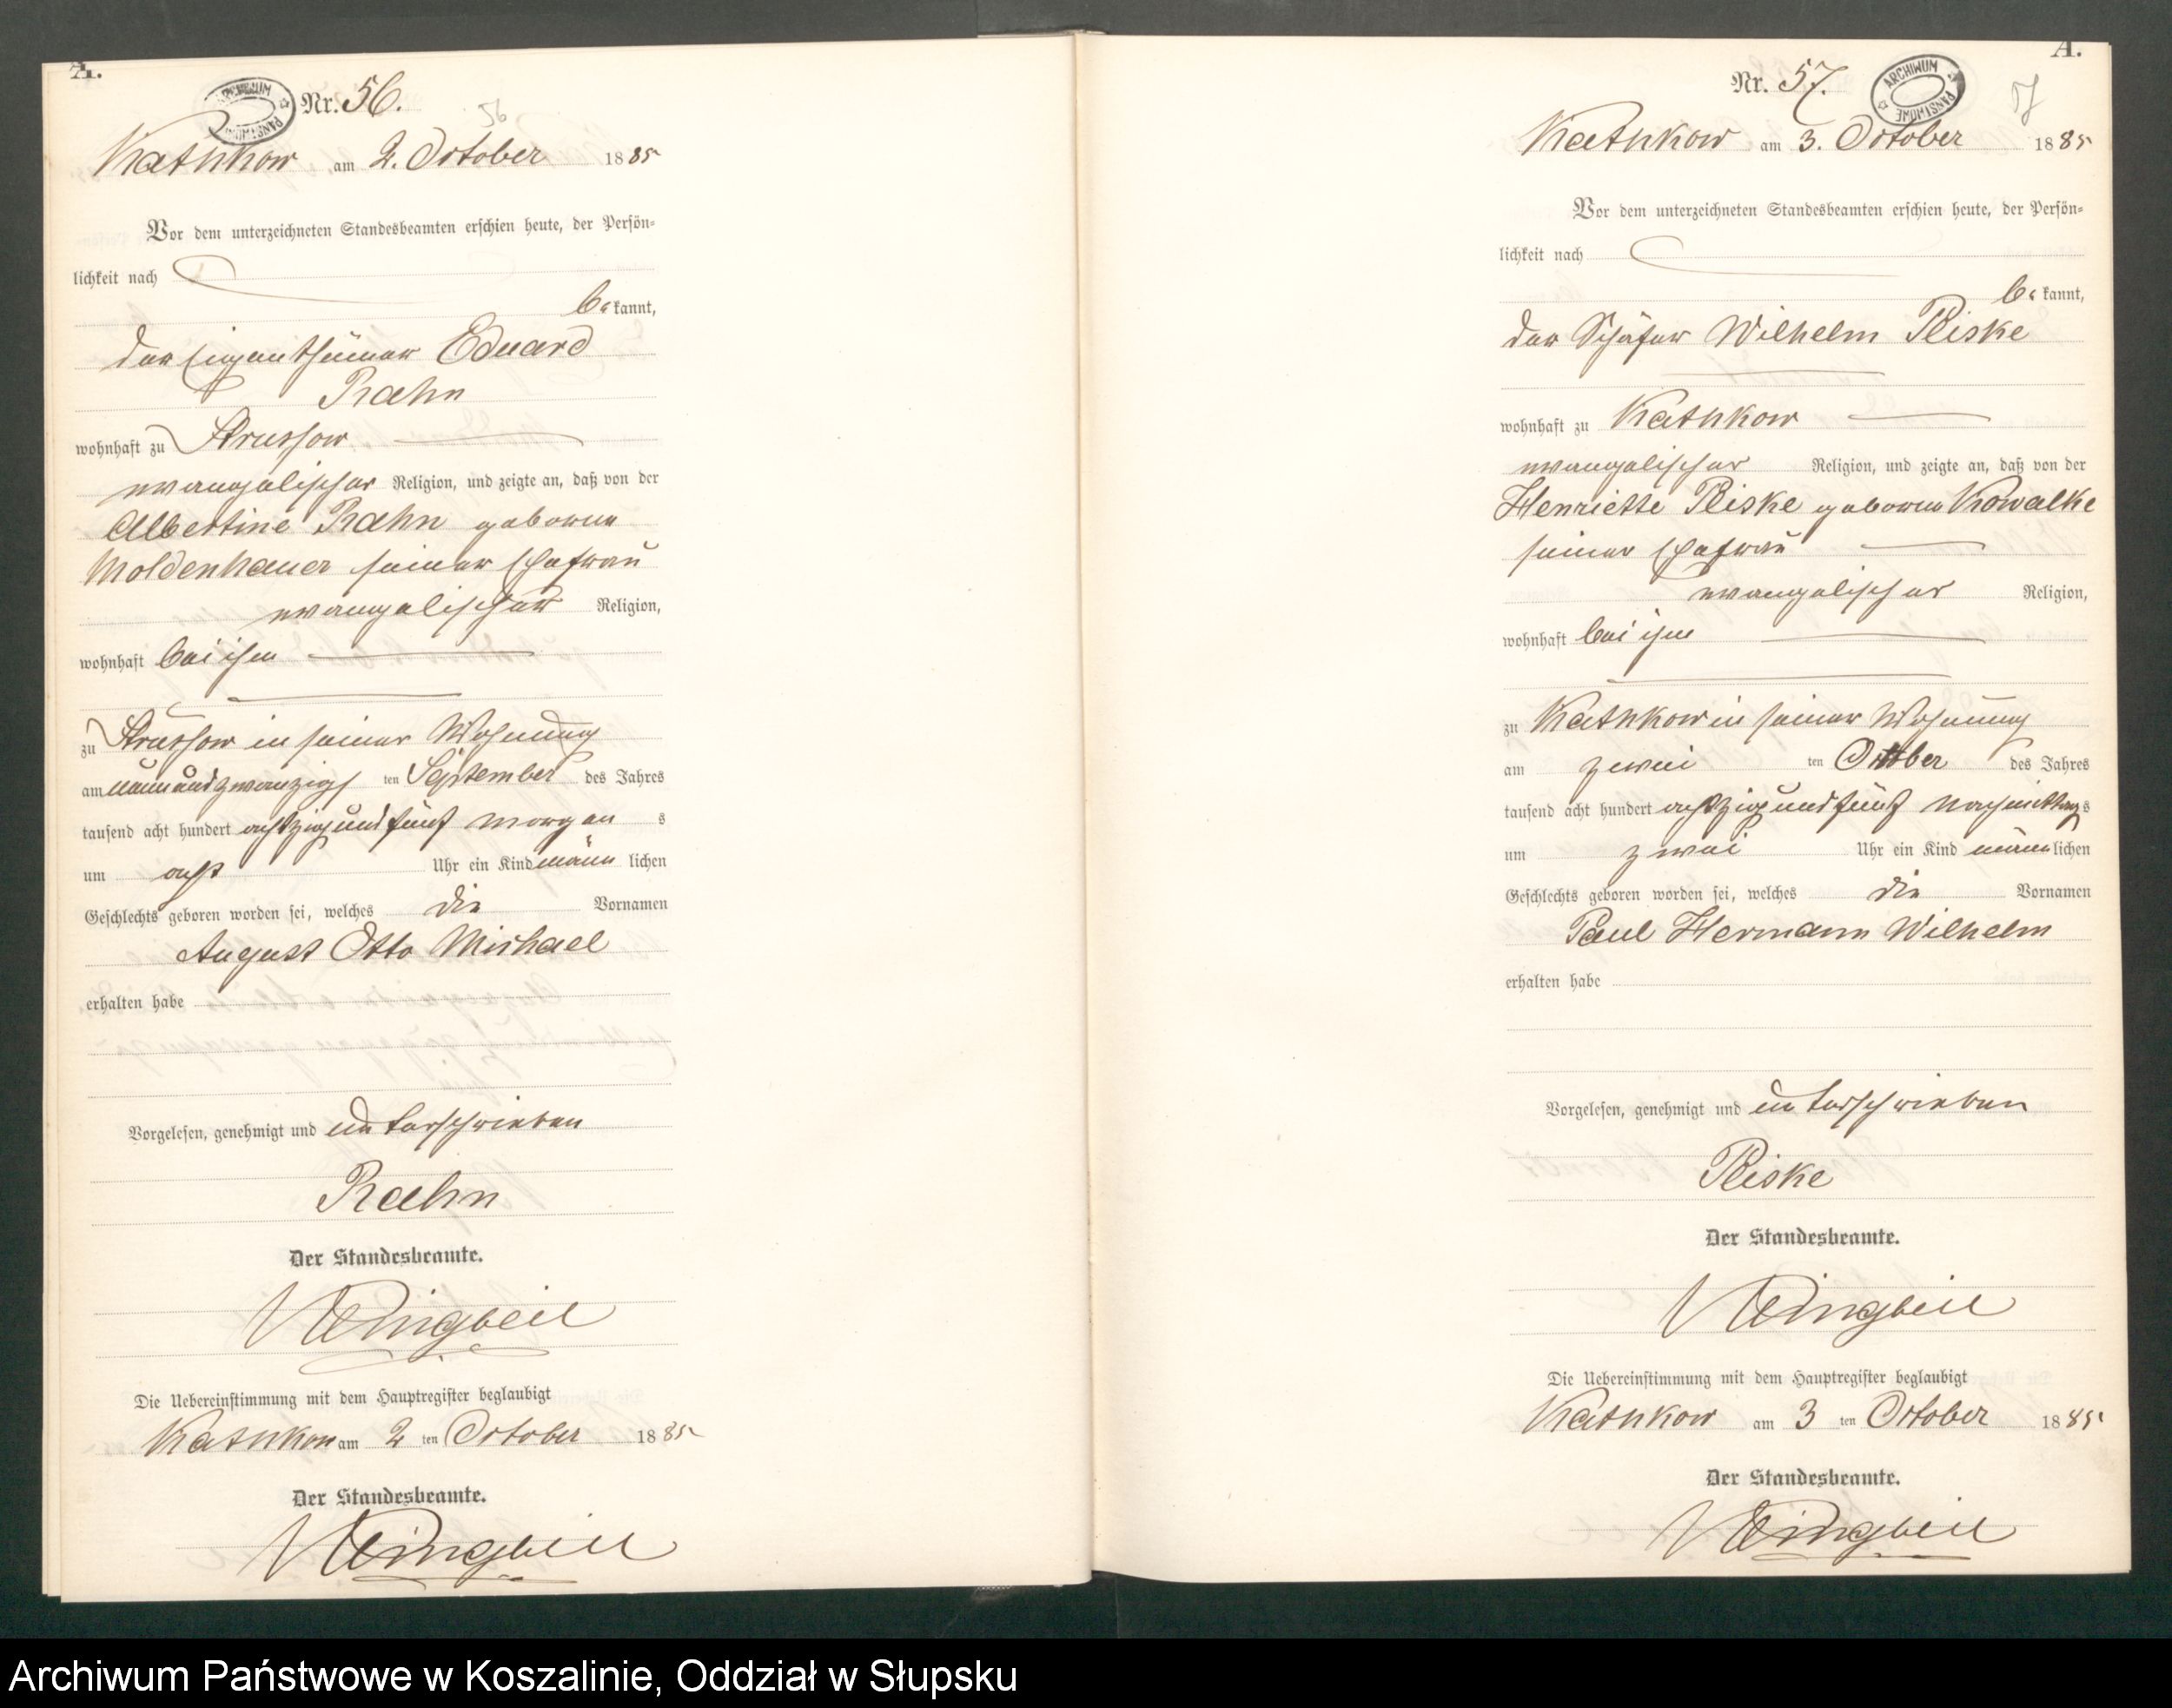 A.
ARCHIWUM PAŃSTWOWE
Nr. 56.
56
Kathkow am 2. October 1885
Vor dem unterzeichneten Standesbeamten erschien heute, der Persön-
lichkeit nach
be kannt,
der Eigenthümer Eduard
Rahn
wohnhaft zu Strussow
evangelischer Religion, und zeigte an, daß von der
Albertine Rahn geborene
Moldenhauer seiner Ehefrau
evangelischer Religion,
wohnhaft bei ihm
zu Strussow in seiner Wohnung
am neunundzwanzigs ten September des Jahres
tausend acht hundert achtzig und fünf Morgen s
um acht Uhr ein Kind männ lichen
Geschlechts geboren worden sei, welches die Vornamen
August Otto Michael
erhalten habe
Vorgelesen, genehmigt und unterschrieben
Rahn
Der Standesbeamte.
Klingbeil
Die Uebereinstimmung mit dem Hauptregister beglaubigt
Kathkow am 2 ten October 1885
Der Standesbeamte.
Klingbeil
A.
Nr. 57.
ARCHIWUM PAŃSTWOWE
57
Kathkow am 3. October 1885
Vor dem unterzeichneten Standesbeamten erschien heute, der Persön-
lichkeit nach
be kannt,
der Schäfer Wilhelm Piske
wohnhaft zu Kathkow
evangelischer Religion, und zeigte an, daß von der
Henriette Piske geborene Kowalke
seiner Ehefrau
evangelischer Religion,
wohnhaft bei ihm
zu Kathkow in seiner Wohnung
am zwei ten October des Jahres
tausend acht hundert achtzig und fünf Nachmittag s
um zwei Uhr ein Kind männ lichen
Geschlechts geboren worden sei, welches die Vornamen
Paul Hermann Wilhelm
erhalten habe
Vorgelesen, genehmigt und unterschrieben
Piske
Der Standesbeamte.
Klingbeil
Die Uebereinstimmung mit dem Hauptregister beglaubigt
Kathkow am 3 ten October 1885
Der Standesbeamte.
Klingbeil
Archiwum Państwowe w Koszalinie, Oddział w Słupsku